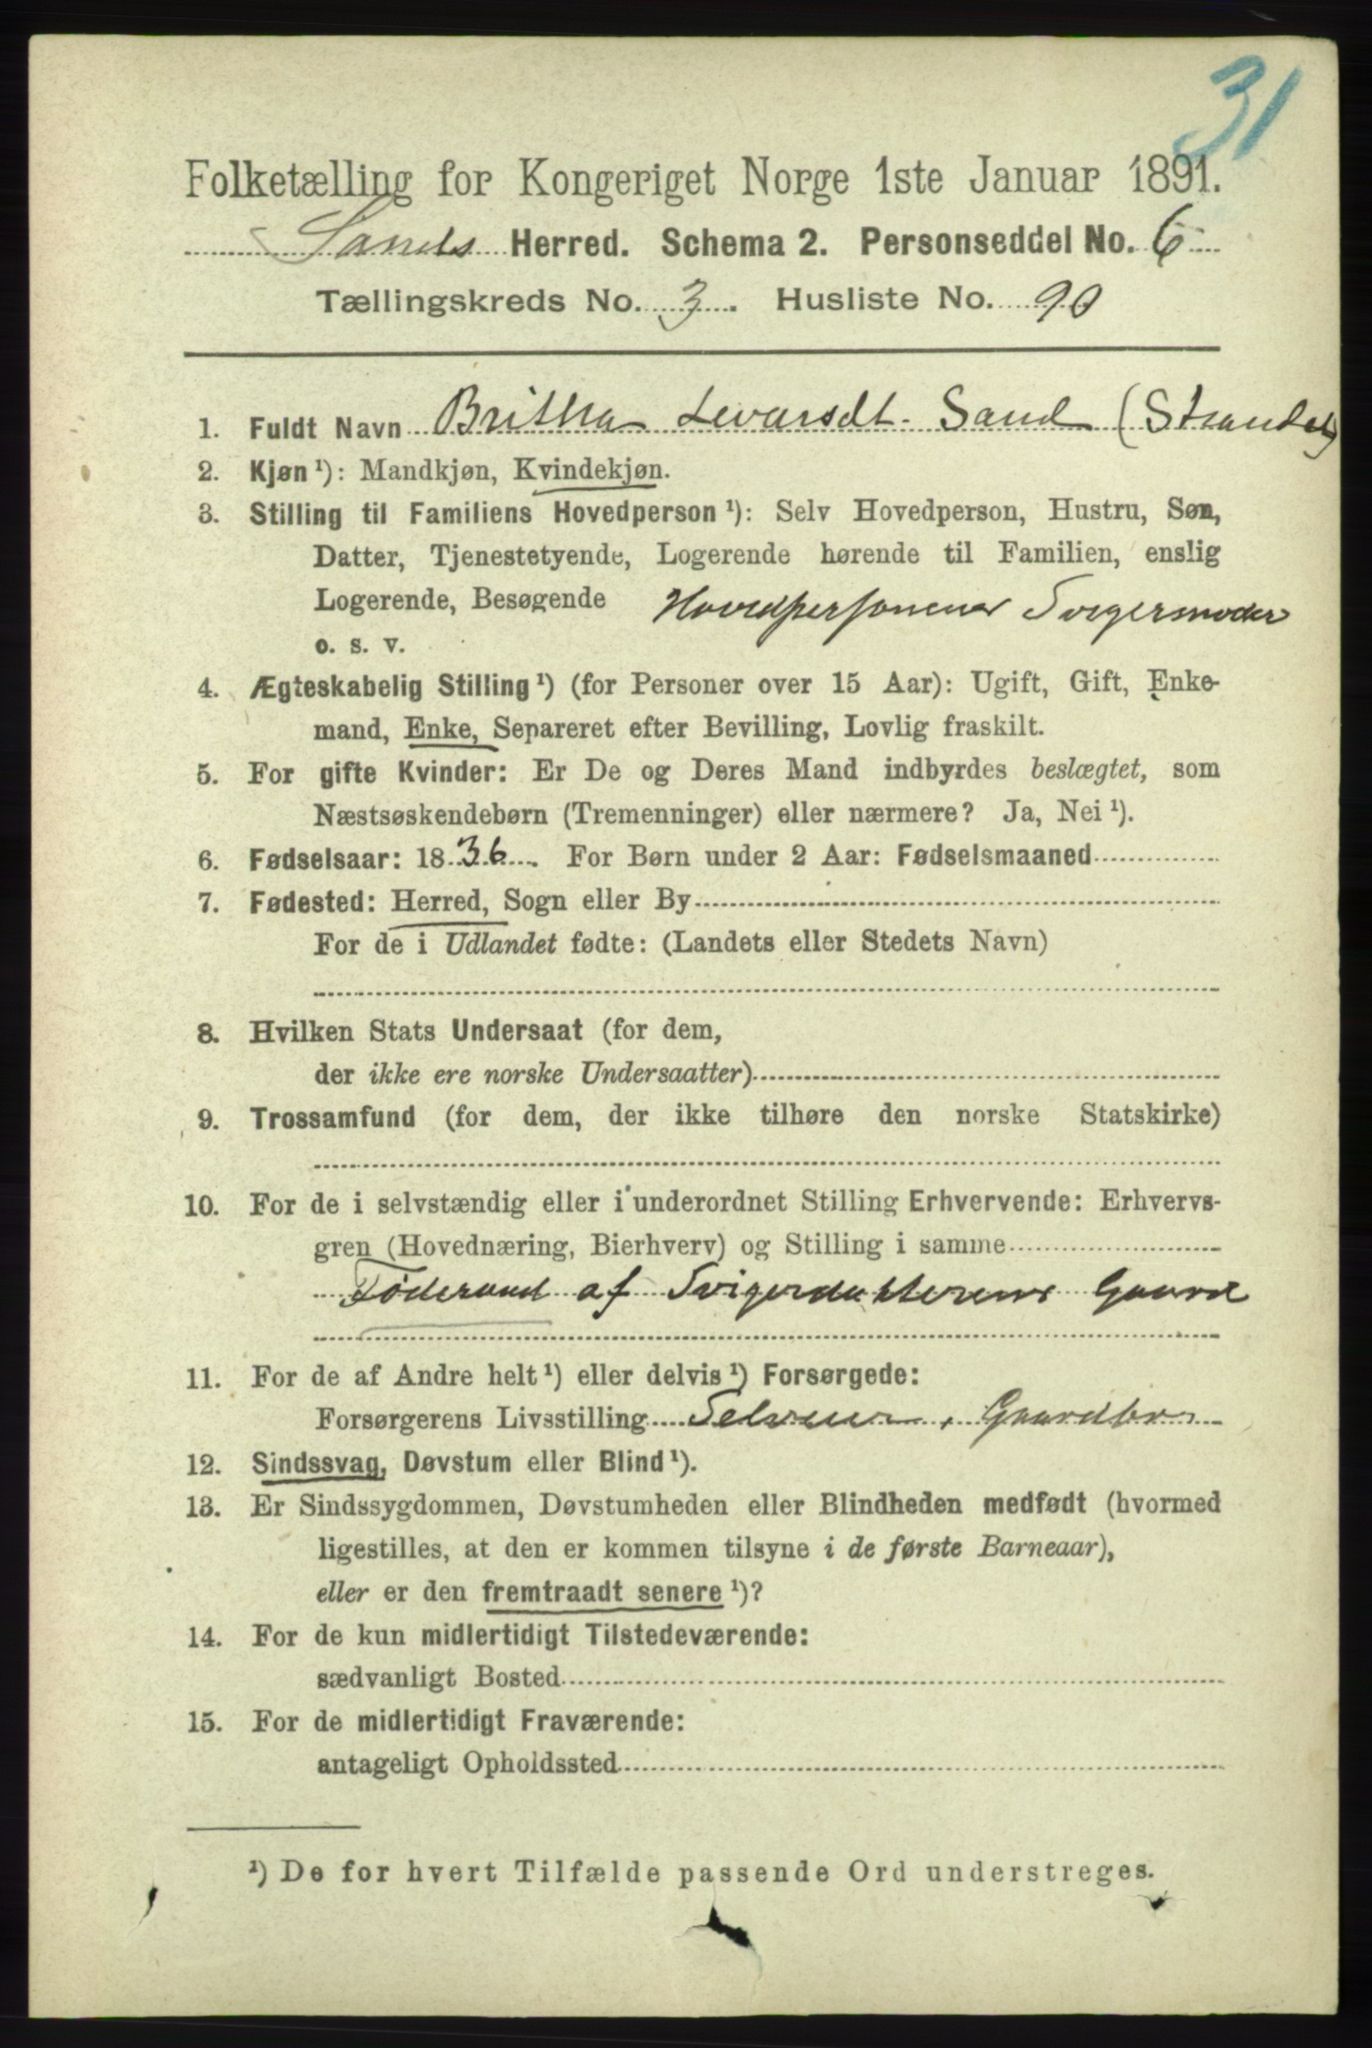 31
Folketælling for Kongeriget Norge 1ste Januar 1891.
Sands Herred. Schema 2. Personseddel No. 6
Tællingskreds No. 3. Husliste No. 90
1. Fuldt Navn Britha Sand (Strandet)
2. Kjøn ¹): Mandkjøn, Kvindekjøn.
3. Stilling til Familiens Hovedperson ¹): Selv Hovedperson, Hustru, Søn,
Datter, Tjenestetyende, Logerende hørende til Familien, enslig
Logerende, Besøgende Hovedpersonens Svigermoder
o. s. v.
4. Ægteskabelig Stilling ¹) (for Personer over 15 Aar): Ugift, Gift, Enke-
mand, Enke, Separeret efter Bevilling, Lovlig fraskilt.
5. For gifte Kvinder: Er De og Deres Mand indbyrdes beslægtet, som
Næstsøskendebørn (Tremenninger) eller nærmere? Ja, Nei ¹).
6. Fødselsaar: 1836. For Børn under 2 Aar: Fødselsmaaned
7. Fødested: Herred, Sogn eller By
For de i Udlandet fødte: (Landets eller Stedets Navn)
8. Hvilken Stats Undersaat (for dem,
der ikke ere norske Undersaatter)
9. Trossamfund (for dem, der ikke tilhøre den norske Statskirke)
10. For de i selvstændig eller i underordnet Stilling Erhvervende: Erhvervs-
gren (Hovednæring, Bierhverv) og Stilling i samme
Føderaad af Svigerdatterens Gaard
11. For de af Andre helt ¹) eller delvis ¹) Forsørgede:
Forsørgerens Livsstilling Selveier, Gaardbr
12. Sindssvag, Døvstum eller Blind ¹).
13. Er Sindssygdommen, Døvstumheden eller Blindheden medfødt (hvormed
ligestilles, at den er kommen tilsyne i de første Barneaar),
eller er den fremtraadt senere ¹)?
14. For de kun midlertidigt Tilstedeværende:
sædvanligt Bosted
15. For de midlertidigt Fraværende:
antageligt Opholdssted
¹) De for hvert Tilfælde passende Ord understreges.